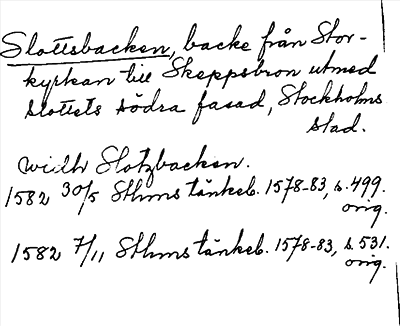 Slottsbacken, backe från Stor-
kyrkan till Skeppsbron utmed
slottets södra fasad, Stockholms
stad.
widh Slotzbacken.
1582 30/5 Sthms tänkeb. 1578-83, s. 499.
orig.
1582 7/11 Sthms tänkeb. 1578-83, s. 531.
orig.